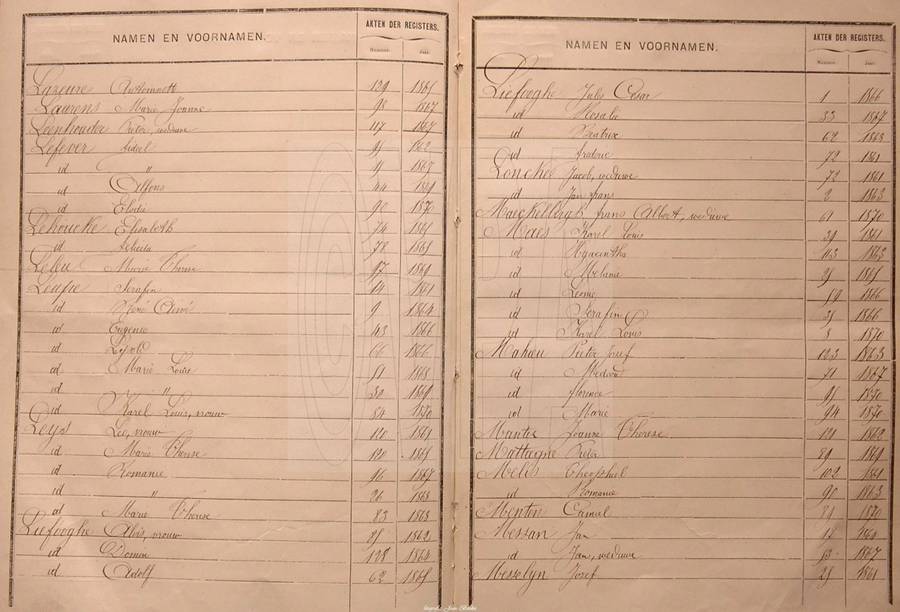 NAMEN EN VOORNAMEN.
AKTEN DER REGISTERS.
Nummer. Jaar.
Lazeure Antoinett 129 1865
Laurens Marie Joanne 98 1867
Leenhouder Pieter, weduwe 117 1867
Lefever Fidel 91 1862
id " 1867
id Alfons 44 1869
id Elodie 90 1870
Lehoucke Elisabeth 74 1861
id 78 1861
Leleu Marie Therese 97 1869
Leupe Serafin 14 1861
id René Aimé 9 1864
id Eugenie 43 1866
id Leopold 66 1866
id Marie Louise 51 1868
id " 30 1869
id Karel Louis, vrouw 54 1870
Leys Leo, vrouw 120 1861
id Marie Therese 120 1865
id Romanie 96 1867
id " 26 1868
id Marie Therese 83 1868
Liefooghe Alvis, vrouw 1862
id Domin 128 1864
id Adolf 62 1865
NAMEN EN VOORNAMEN.
AKTEN DER REGISTERS.
Nummer. Jaar.
Liefooghe Jules César 1 1866
id Rosalie 33 1867
id Beatrix 62 1868
id 72 1861
Lonchet Jacob, weduwe 72 1861
id Jan frans 2 1863
Maeckelbergh frans Albert, weduwe 61 1870
Maes Karel Louis 39 1861
id Hyacinthe 103 1863
id Melanie 1865
id Leonie 19 1866
id Serafin C 31 1866
id Karel Louis 8 1870
Mahieu Pieter Josef 123 1863
id Medard 71 1867
id florence 91 1870
id Marie 94 1870
Mantez Joanne Therese 121 1862
Mattagne Pieter 89 1869
Melis Theophiel 102 1861
id Romanie 90 1863
Mentin Camiel 84 1870
Messan Jan 18 1864
id Jan, weduwe 13 1867
Messelyn Josef 28 1861